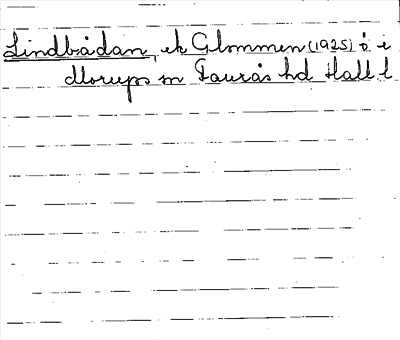 Lindbådan, ek Glommen (1925) ö i
Morups sn Faurås hd Hall l